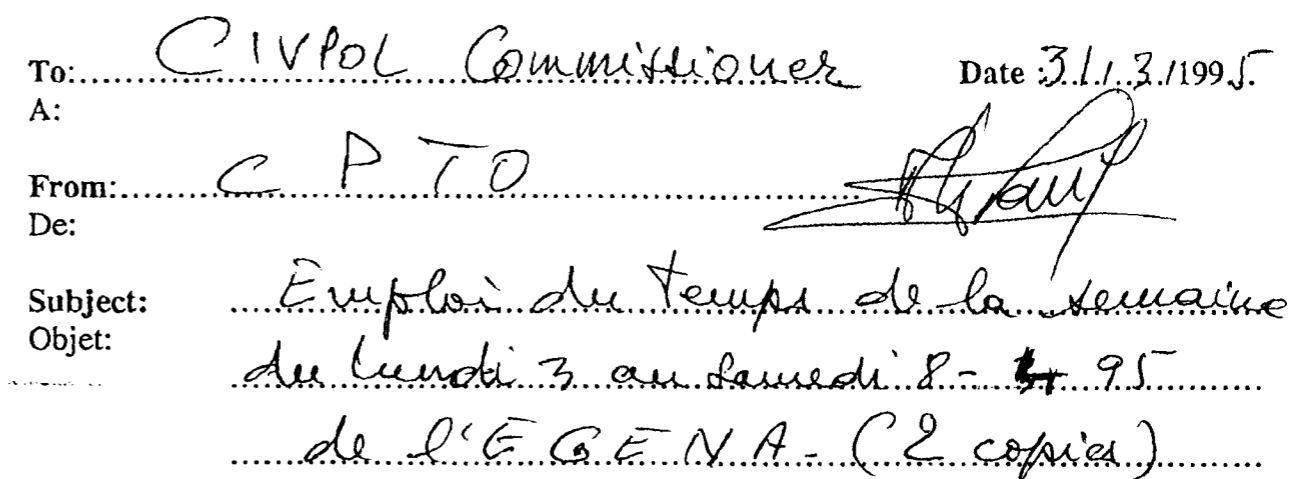 To: CIVPOL Commissioner Date: 31/3/1995
A:
From: C P T O
De:
Subject: Emploi du temps de la semaine
Objet:
du lundi 3 au samedi 8-4 95
de l'EGENA - (2 copies)